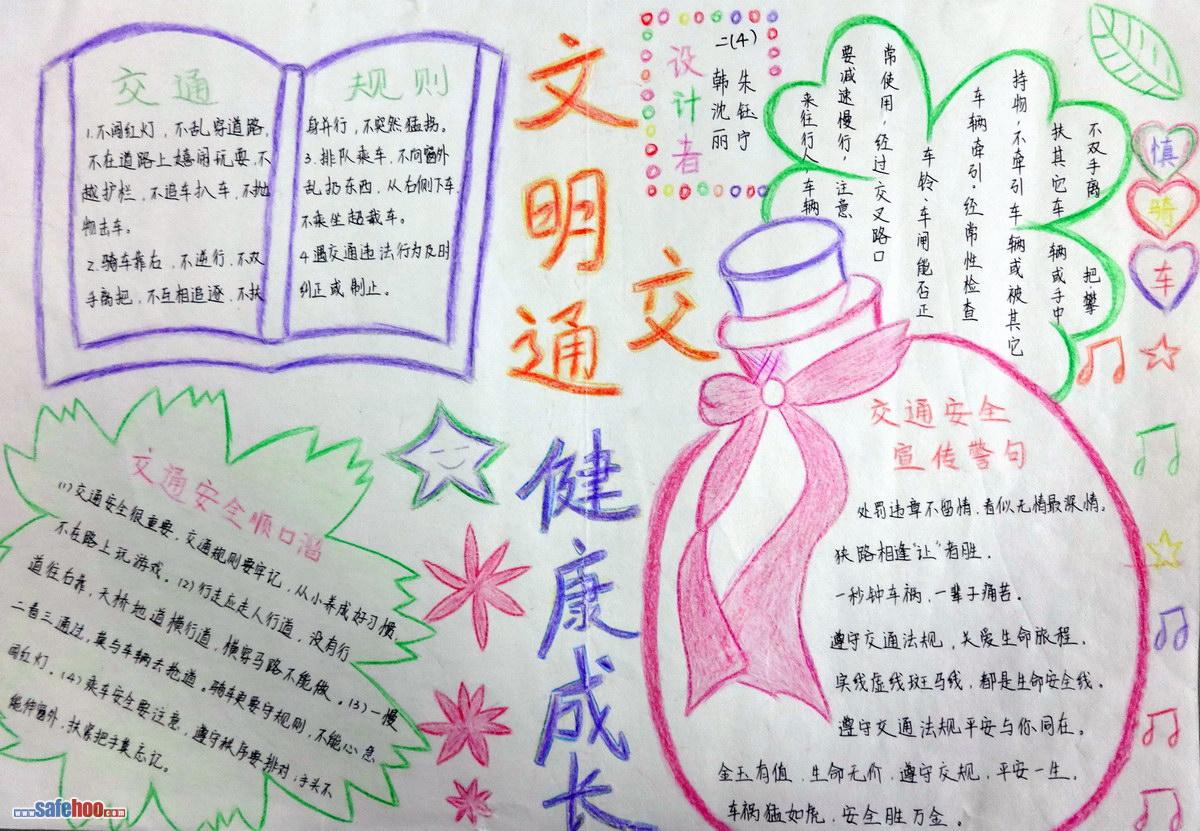 交通 规则
1.不闯红灯,不乱穿道路,
不在道路上嬉闹玩耍,不
越护栏,不追车扒车,不抛
物击车。
2.骑车靠右,不逆行,不双
手离把,不互相追逐,不扶
身并行,不突然猛拐。
3.排队乘车,不向窗外
乱扔东西,从右侧下车,
不乘坐超载车。
4遇交通违法行为及时
纠正或制止。
文明交通
健康成长
设计者
二(4)
朱钰宁
韩沈丽
慎骑车
不双手离把·攀
扶其它车辆或手中
持物,不牵引车辆或被其它
车辆牵引·经常性检查
车铃、车闸能否正
常使用,经过交叉路口
要减速慢行,注意
来往行人、车辆
交通安全顺口溜
(1)交通安全很重要,交通规则要牢记,从小养成好习惯,
不在路上玩游戏。(2)行走应走人行道,没有行
道往右靠,天桥地道横行道,横穿马路不能做。(3)一慢
二看三通过,莫与车辆去抢道。骑车更要守规则,不能心急
闯红灯。(4)乘车安全要注意,遵守秩序要排对,手头不
能伸窗外,扶紧把手莫忘记。
交通安全
宣传警句
处罚违章不留情,看似无情最深情。
狭路相逢"让"者胜。
一秒钟车祸,一辈子痛苦。
遵守交通法规,关爱生命旅程。
实线虚线斑马线,都是生命安全线。
遵守交通法规平安与你同在。
金玉有值,生命无价,遵守交规,平安一生。
车祸猛如虎,安全胜万金。
www.safehoo.com